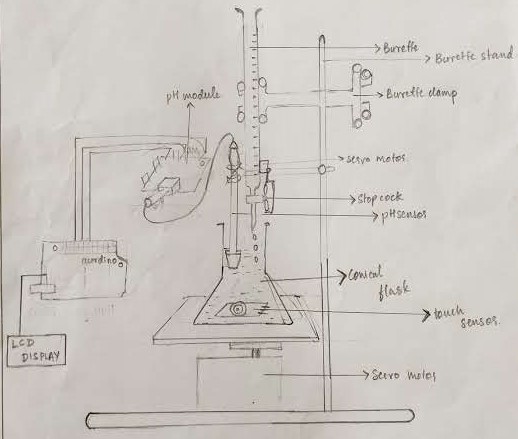 Burette
Burette stand
pH module
Burette clamp
servo motor
Stop cock
pH sensor
aurdino
Conical
flask
touch
sensor.
LCD
DISPLAY
Servo motor